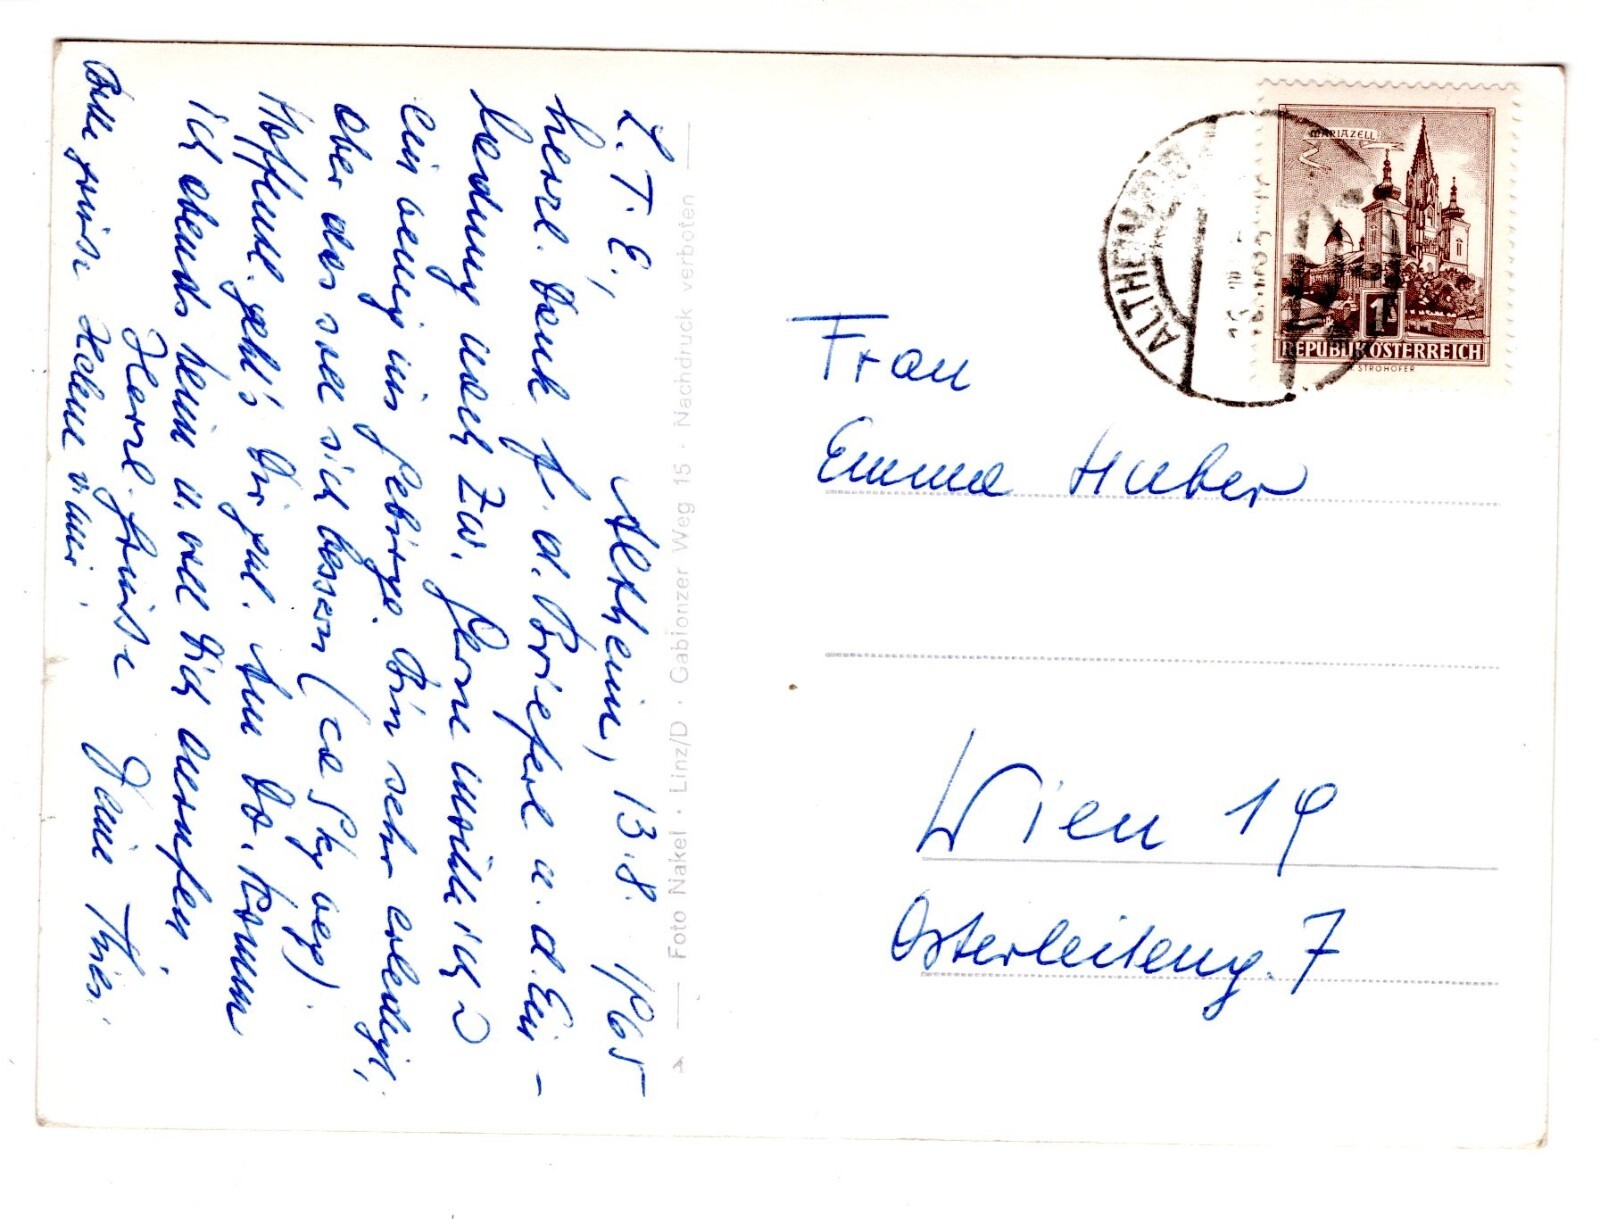 Altheim, 13.8. 1965
L. T. E.,
herzl. Dank f. d. Brieferl u. d. Ein-
ladung nach Zw. Gerne möchte ich
ein wenig ins Gebirge. Bin sehr erledigt,
aber das soll sich bessern
Hoffentl. geht's Dir gut. Am Do. komm
ich abends heim u. will Dich anrufen.
Herzl. Grüße Deine Thesi.
Bitte grüße Helene v. mir.
Foto Nakel · Linz/D · Gablonzer Weg 15 · Nachdruck verboten
MARIAZELL
1
REPUBLIK ÖSTERREICH
STROHOFER
ALTHEIM
Frau
Emma Huber
Wien 19
Osterleiteng. 7